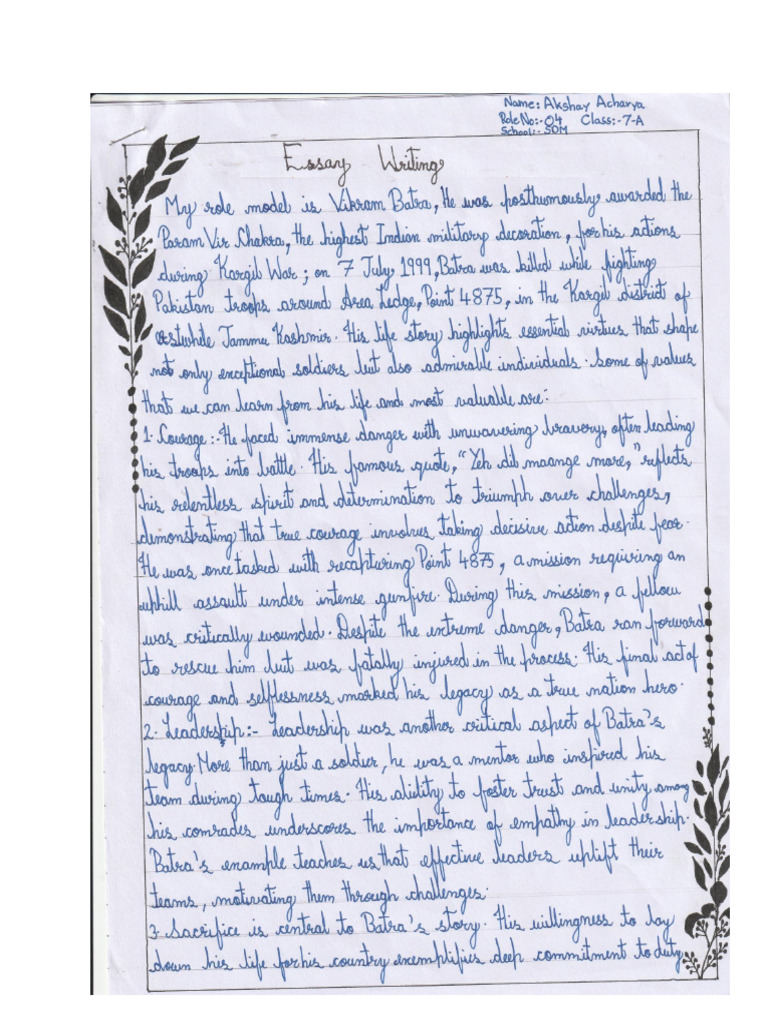 Name: Akshay Acharya
Role No:-04 Class:-7-A
School:- SOM
Essay Writing
My role model is Vikram Batra, He was posthumously awarded the
Param Vir Chakra, the highest Indian military decoration, for his actions
during Kargil War; on 7 July 1999, Batra was killed while fighting
Pakistan troops around Area Ledge, Point 4875, in the Kargil district of
erstwhile Jammu Kashmir. His life story highlights essential virtues that shape
not only exceptional soldiers but also admirable individuals. Some of values
that we can learn from his life and most valuable are:
1. Courage:- He faced immense danger with unwavering bravery, often leading
his troops into battle. His famous quote, "Yeh dil maange more," reflects
his relentless spirit and determination to triumph over challenges,
demonstrating that true courage involves taking decisive action despite fear.
He was once tasked with recapturing Point 4875, a mission requiring an
uphill assault under intense gunfire. During this mission, a fellow
was critically wounded. Despite the extreme danger, Batra ran forward
to rescue him but was fatally injured in the process. His final act of
courage and selflessness marked his legacy as a true nation hero.
2. Leadership:- Leadership was another critical aspect of Batra's
legacy. More than just a soldier, he was a mentor who inspired his
team during tough times. His ability to foster trust and unity among
his comrades underscores the importance of empathy in leadership.
Batra's example teaches us that effective leaders uplift their
teams, motivating them through challenges.
3. Sacrifice is central to Batra's story. His willingness to lay
down his life for his country exemplifies deep commitment to duty